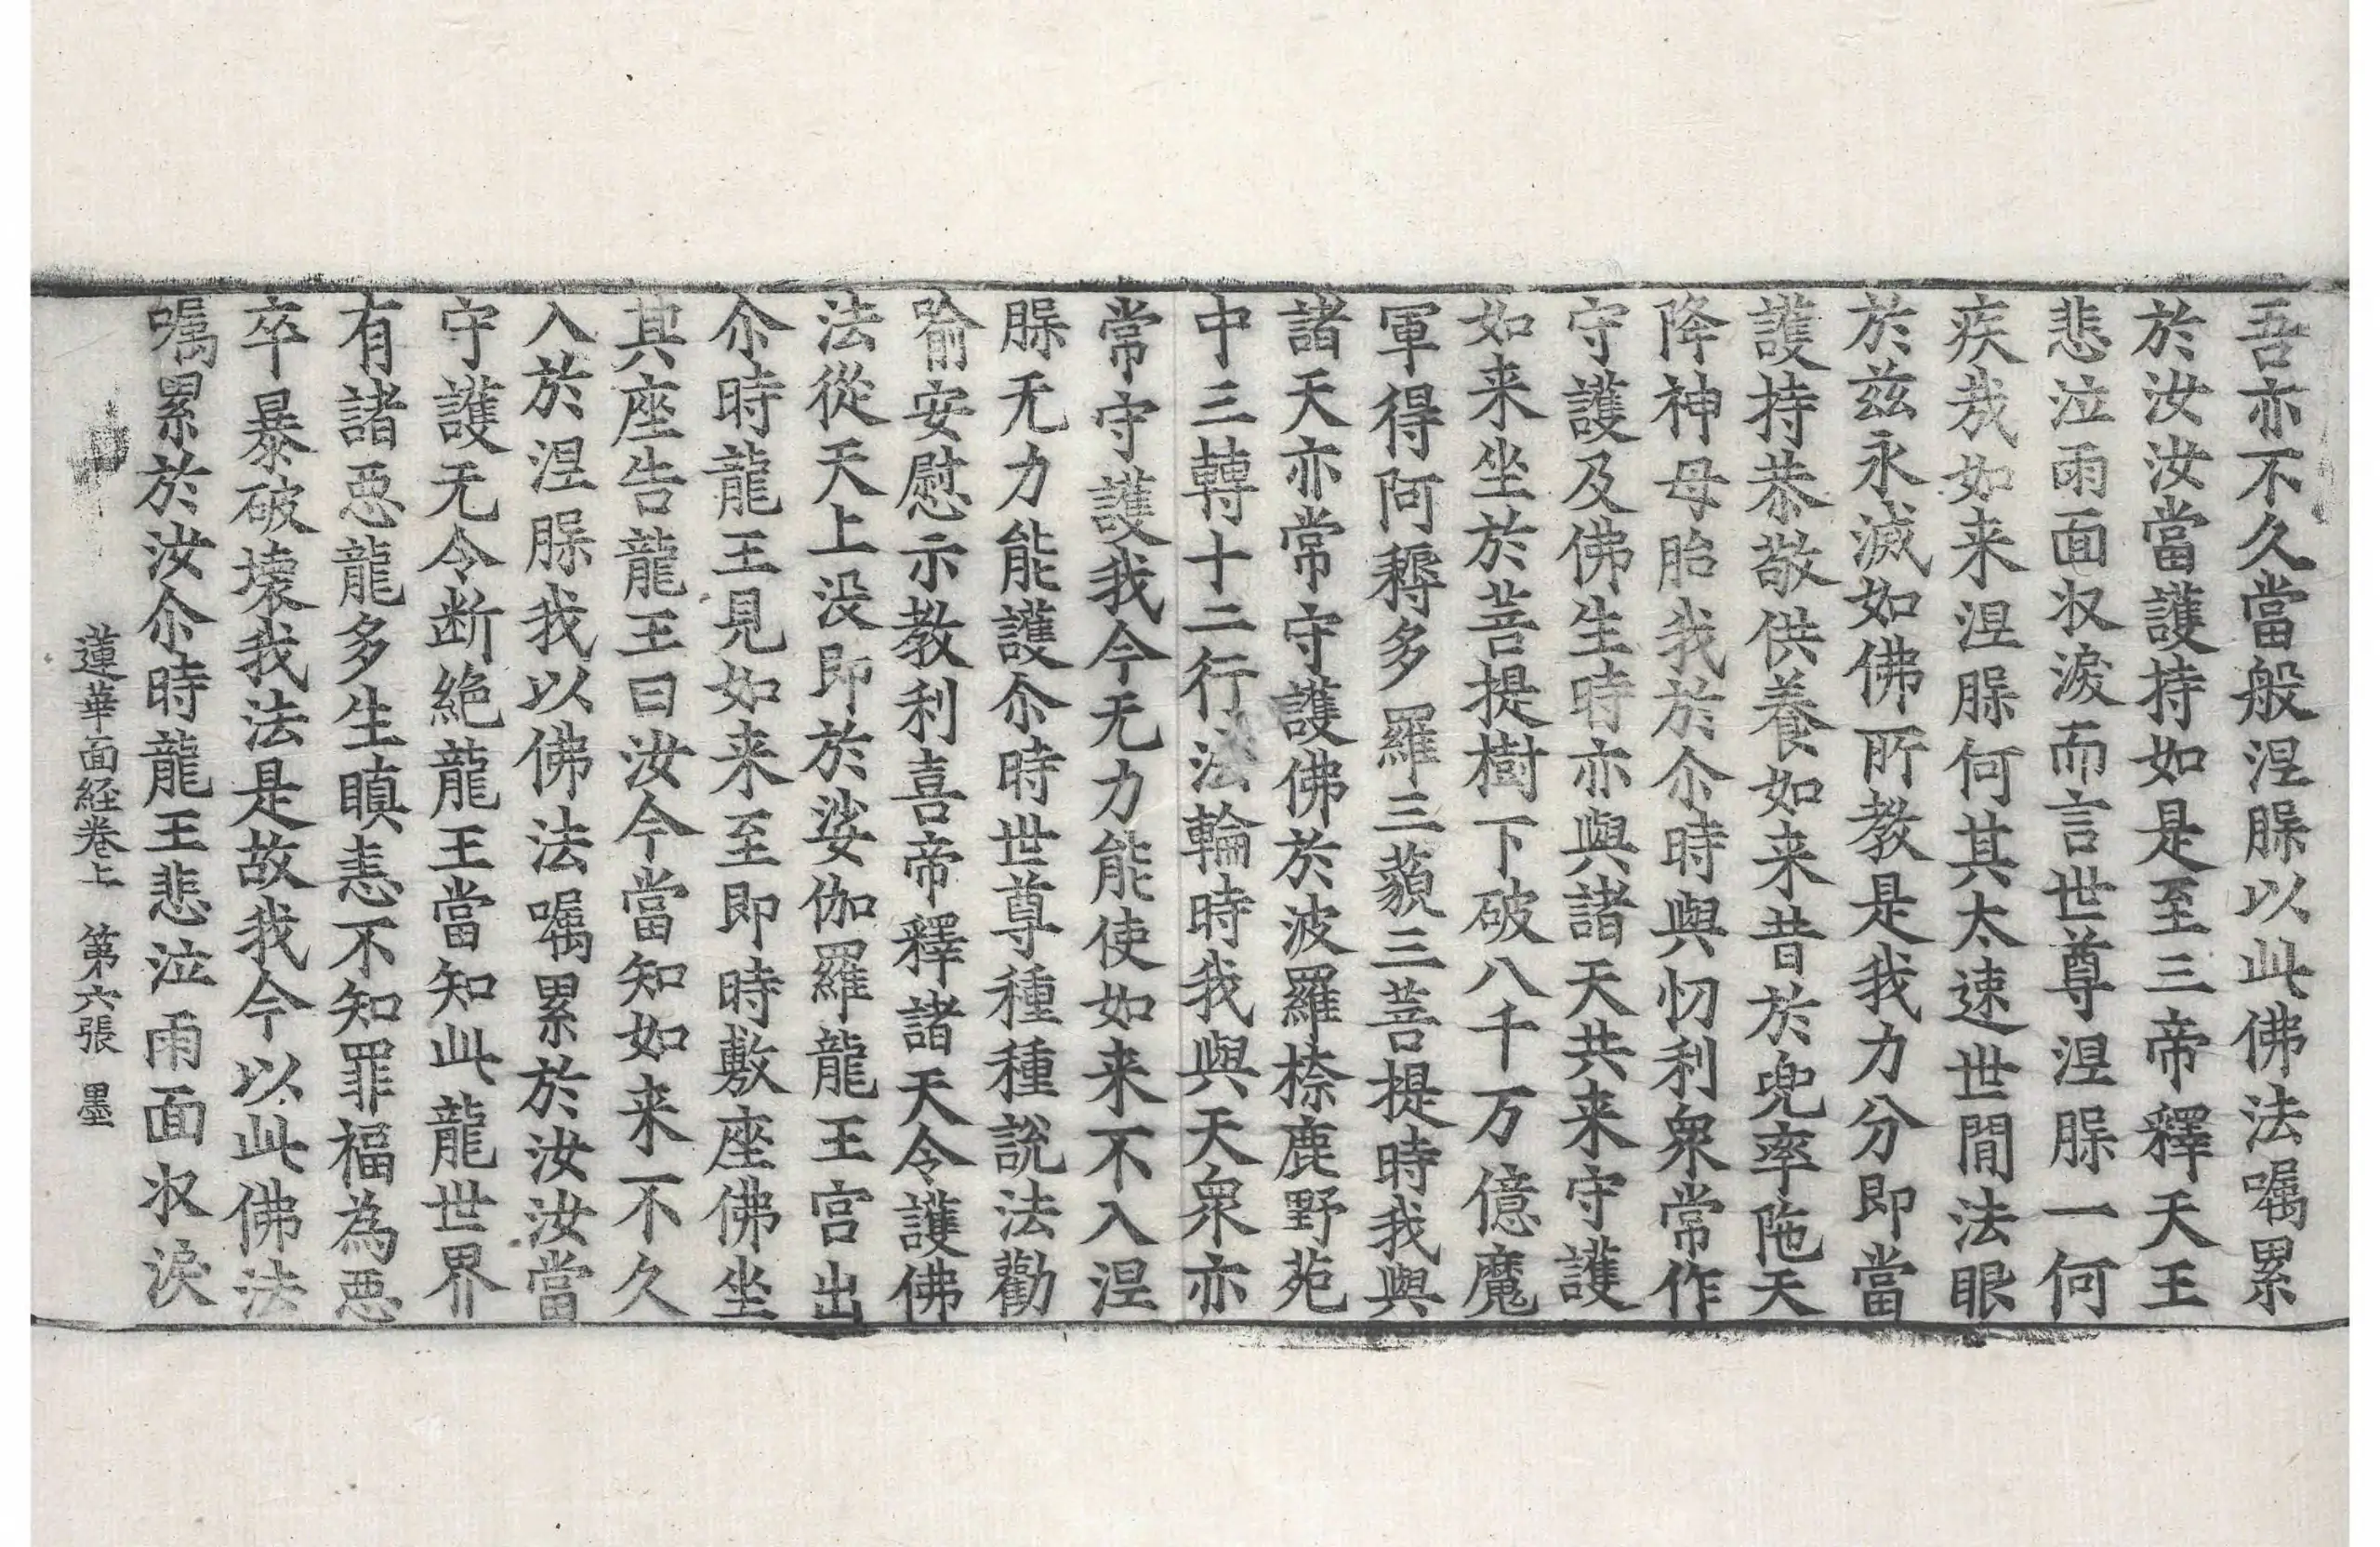 吾亦不久當般涅槃以此佛法囑累
於汝汝當護持如是至三帝釋天王
悲泣雨面収淚而言世尊涅槃一何
疾㢤如来涅槃何其太速世間法眼
於兹永滅如佛所教是我力分即當
護持恭敬供養如来昔於兜率陁天
降神母胎我於尒時與忉利衆常作
守護及佛生時亦與諸天共来守護
如来坐於菩提樹下破八千万億魔
軍得阿耨多羅三藐三菩提時我與
諸天亦常守護佛於波羅㮈鹿野苑
中三轉十二行法輪時我與天衆亦
常守護我今无力能使如来不入涅
槃无力能護尒時世尊種種說法勸
喻安慰示教利喜帝釋諸天令護佛
法從天上没即於娑伽羅龍王宫出
尒時龍王見如来至即時敷座佛坐
其座告龍王曰汝今當知如来不久
入於涅槃我以佛法囑累於汝汝當
守護无令断絶龍王當知此龍世界
有諸惡龍多生瞋恚不知罪福為惡
卒暴破壞我法是故我今以此佛法
囑累於汝尒時龍王悲泣雨面収淚
蓮華面経卷上 第六張 墨